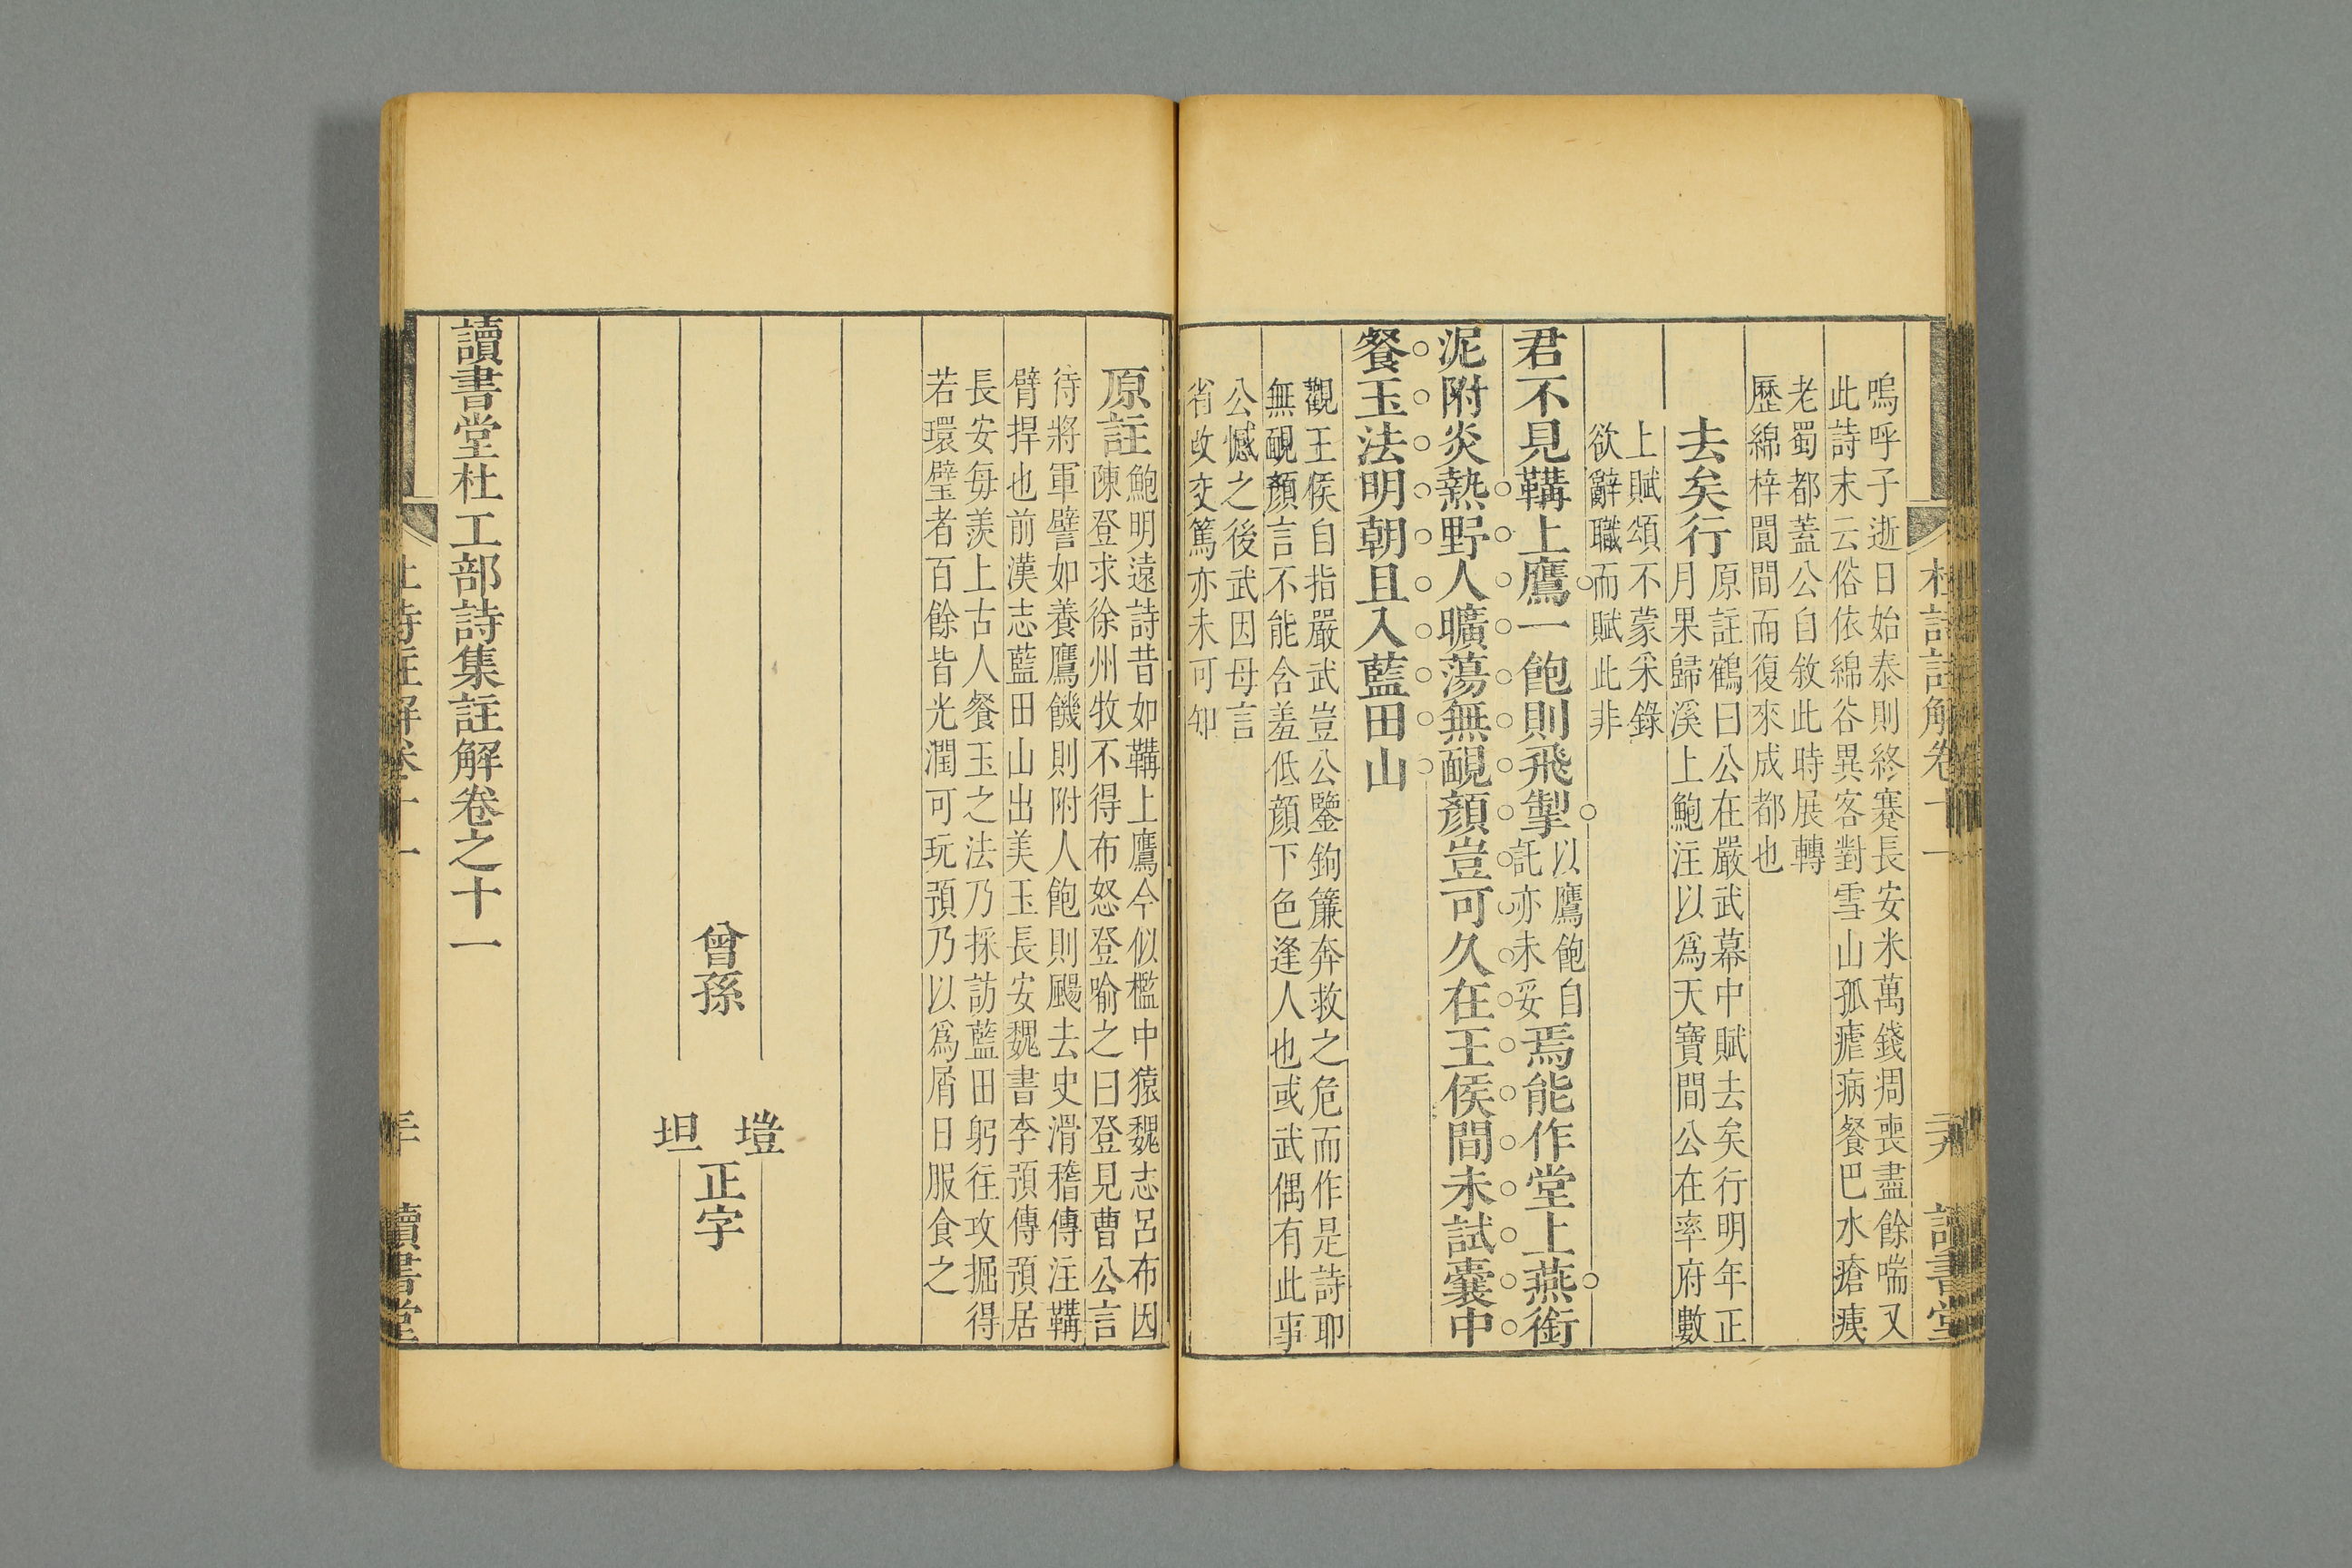 嗚呼子逝日始泰則終蹇長安米萬錢凋喪盡餘喘又
此詩末云俗依綿谷異客對雪山孤瘧病餐巴水瘡痍
老蜀都蓋公自敘此時展轉
歷綿梓閬間而復來成都也
去矣行
原註鶴曰公在嚴武幕中賦去矣行明年正
月果歸溪上鮑注以爲天寶間公在率府數
上賦頌不蒙采錄
欲辭職而賦此非
君不見鞲上鷹一飽則飛掣以鷹飽自託亦未妥焉能作堂上燕銜
泥附炎熱野人曠蕩無靦顏豈可久在王侯間未試囊中
餐玉法明朝且入藍田山
觀王侯自指嚴武豈公鑒鉤簾奔救之危而作是詩耶
無靦顏言不能含羞低顏下色逢人也或武偶有此事
公憾之後武因母言
省改交篤亦未可知
杜詩註解卷十一
二十九
讀書堂
原註
鮑明遠詩昔如鞲上鷹今似檻中猿魏志呂布因
陳登求徐州牧不得布怒登喻之曰登見曹公言
待將軍譬如養鷹饑則附人飽則颺去史滑稽傳注鞲
臂捍也前漢志藍田山出美玉長安魏書李預傳預居
長安每羨上古人餐玉之法乃採訪藍田躬往攻掘得
若環璧者百餘皆光潤可玩預乃以爲屑日服食之
曾孫
塏
坦
正字
讀書堂杜工部詩集註解卷之十一
杜詩註解卷十一
三十
讀書堂